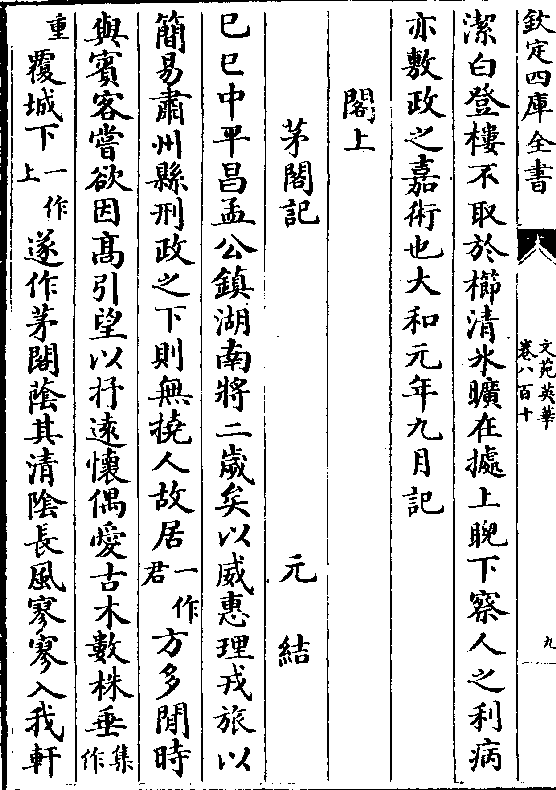 欽定四庫全書
文苑英華
卷八百十
九
潔白登樓不取於櫛清氷曠在據上睨下察人之利病
亦敷政之嘉術也大和元年九月記
閣上
茅閣記
元結
已已中平昌孟公鎮湖南將二歲矣以威惠理戎旅以
簡易肅州縣刑政之下則無撓人故居一作君方多閒時
與賓客嘗欲因髙引望以抒遠懷偶愛古木數株垂集作
重覆城下一作上遂作茅閣蔭其清陰長風寥寥入我軒